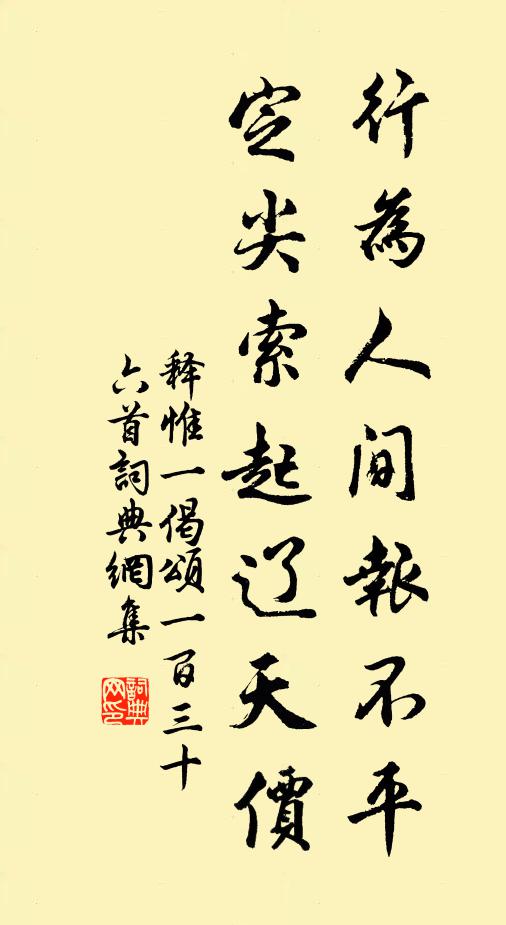 行為人間報不平
定尖索起辽天價
释惟一偈頌一百三十
六首詞典網集
詞典
网印